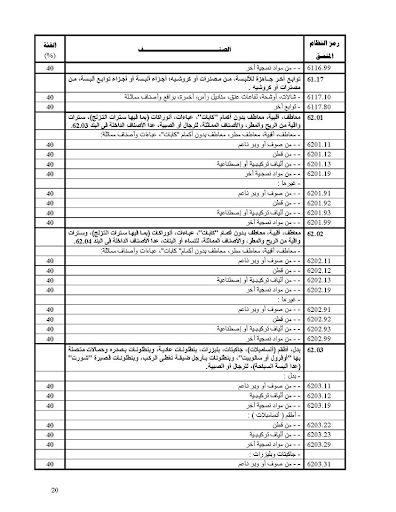 رمز النظام المنسق الصنــــــــف الفئة (%)
6116.99 - - من مواد نسجية أخر 40
61.17 توابع أخر جاهزة للألبسة، من مصنرات أو كروشيه؛ أجزاء ألبسة أو أجزاء توابع ألبسة، من
مصنرات أو كروشيه .
6117.10 - شالات، أوشحة، لفاعات عنق، مناديل رأس، أخمرة، براقع وأصناف مماثلة 40
6117.80 - توابع أخر 40
62.01 معاطف، أقبية، معاطف بدون أكمام "كابات"، عباءات، أنوراكات (بما فيها سترات التزلج)، سترات
واقية من الريح والمطر، والأصناف المماثلة، للرجال أو الصبية، عدا الأصناف الداخلة في البند 62.03
- معاطف، أقبية، معاطف مطر، معاطف بدون أكمام "كابات"، عباءات وأصناف مماثلة:
6201.11 - - من صوف أو وبر ناعم 40
6201.12 - - من قطن 40
6201.13 - - من ألياف تركيبية أو إصطناعية 40
6201.19 - - من مواد نسجية أخر 40
- غيرها :
6201.91 - - من صوف أو وبر ناعم 40
6201.92 - - من قطن 40
6201.93 - - من ألياف تركيبية أو إصطناعية 40
6201.99 - - من مواد نسجية أخر 40
62.02 معاطف، أقبية، معاطف بدون أكمام "كابات"، عباءات، أنوراكات (بما فيها سترات التزلج)، وسترات
واقية من الريح والمطر، والأصناف المماثلة، للنساء أو البنات، عدا الأصناف الداخلة في البند 62.04
- معاطف، أقبية، معاطف مطر، معاطف بدون أكمام "كابات"، عباءات وأصناف مماثلة:
6202.11 - - من صوف أو وبر ناعم 40
6202.12 - - من قطن 40
6202.13 - - من ألياف تركيبية أو إصطناعية 40
6202.19 - - من مواد نسجية أخر 40
- غيرها :
6202.91 - - من صوف أو وبر ناعم 40
6202.92 - - من قطن 40
6202.93 - - من ألياف تركيبية أو إصطناعية 40
6202.99 - - من مواد نسجية أخر 40
62.03 بدل، أطقم (أنسامبلات)، جاكيتات، بليزرات، بنطلونات عادية، وبنطلونات بصدره وحمالات متصلة
بها "أوفرول أو سالوبيت"، وبنطلونات بأرجل ضيقة تغطي الركب، وبنطلونات قصيرة "شورت"
(عدا ألبسة السباحة)، للرجال أو الصبية.
- بدل :
6203.11 - - من صوف أو وبر ناعم 40
6203.12 - - من ألياف تركيبية 40
6203.19 - - من مواد نسجية أخر 40
- أطقم ( أنسامبلات ) :
6203.22 - - من قطن 40
6203.23 - - من ألياف تركيبية 40
6203.29 - - من مواد نسجية أخر 40
- جاكيتات وبليزرات :
6203.31 - - من صوف أو وبر ناعم 40
20